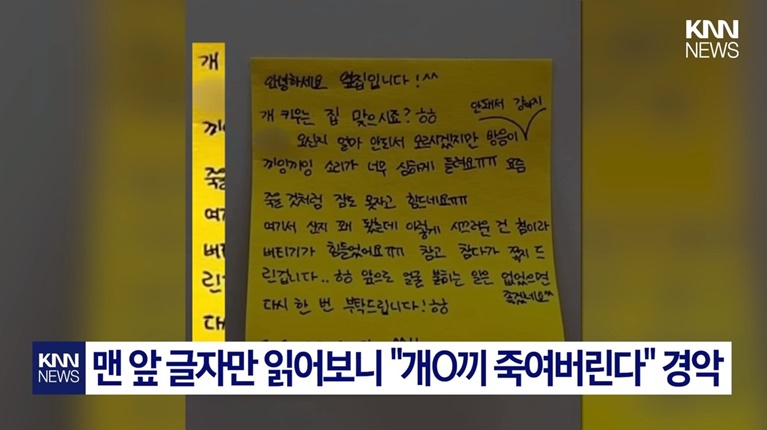 KNN
NEWS
개
끼
죽
여
버
린
다
안녕하세요 옆집입니다!^^
개 키우는 집 맞으시죠?ㅎㅎ
안돼서 강아지
오신지 얼마 안되서 모르시겠지만 방음이
끼잉끼잉 소리가 너무 심하게 들려요ㅠㅠ 요즘
죽을 것처럼 잠도 못자고 힘드네요ㅠㅠ
여기서 산지 꽤 됐는데 이렇게 시끄러운 건 첨이라
버티기가 힘들었어요ㅠㅠ 참고 참다가 쪽지 드
린겁니다.. ㅎㅎ 앞으로 얼굴 붉히는 일은 없었으면
좋겠네요^^
다시 한 번 부탁드립니다!ㅎㅎ
KNN
NEWS
맨 앞 글자만 읽어보니 "개O끼 죽여버린다" 경악